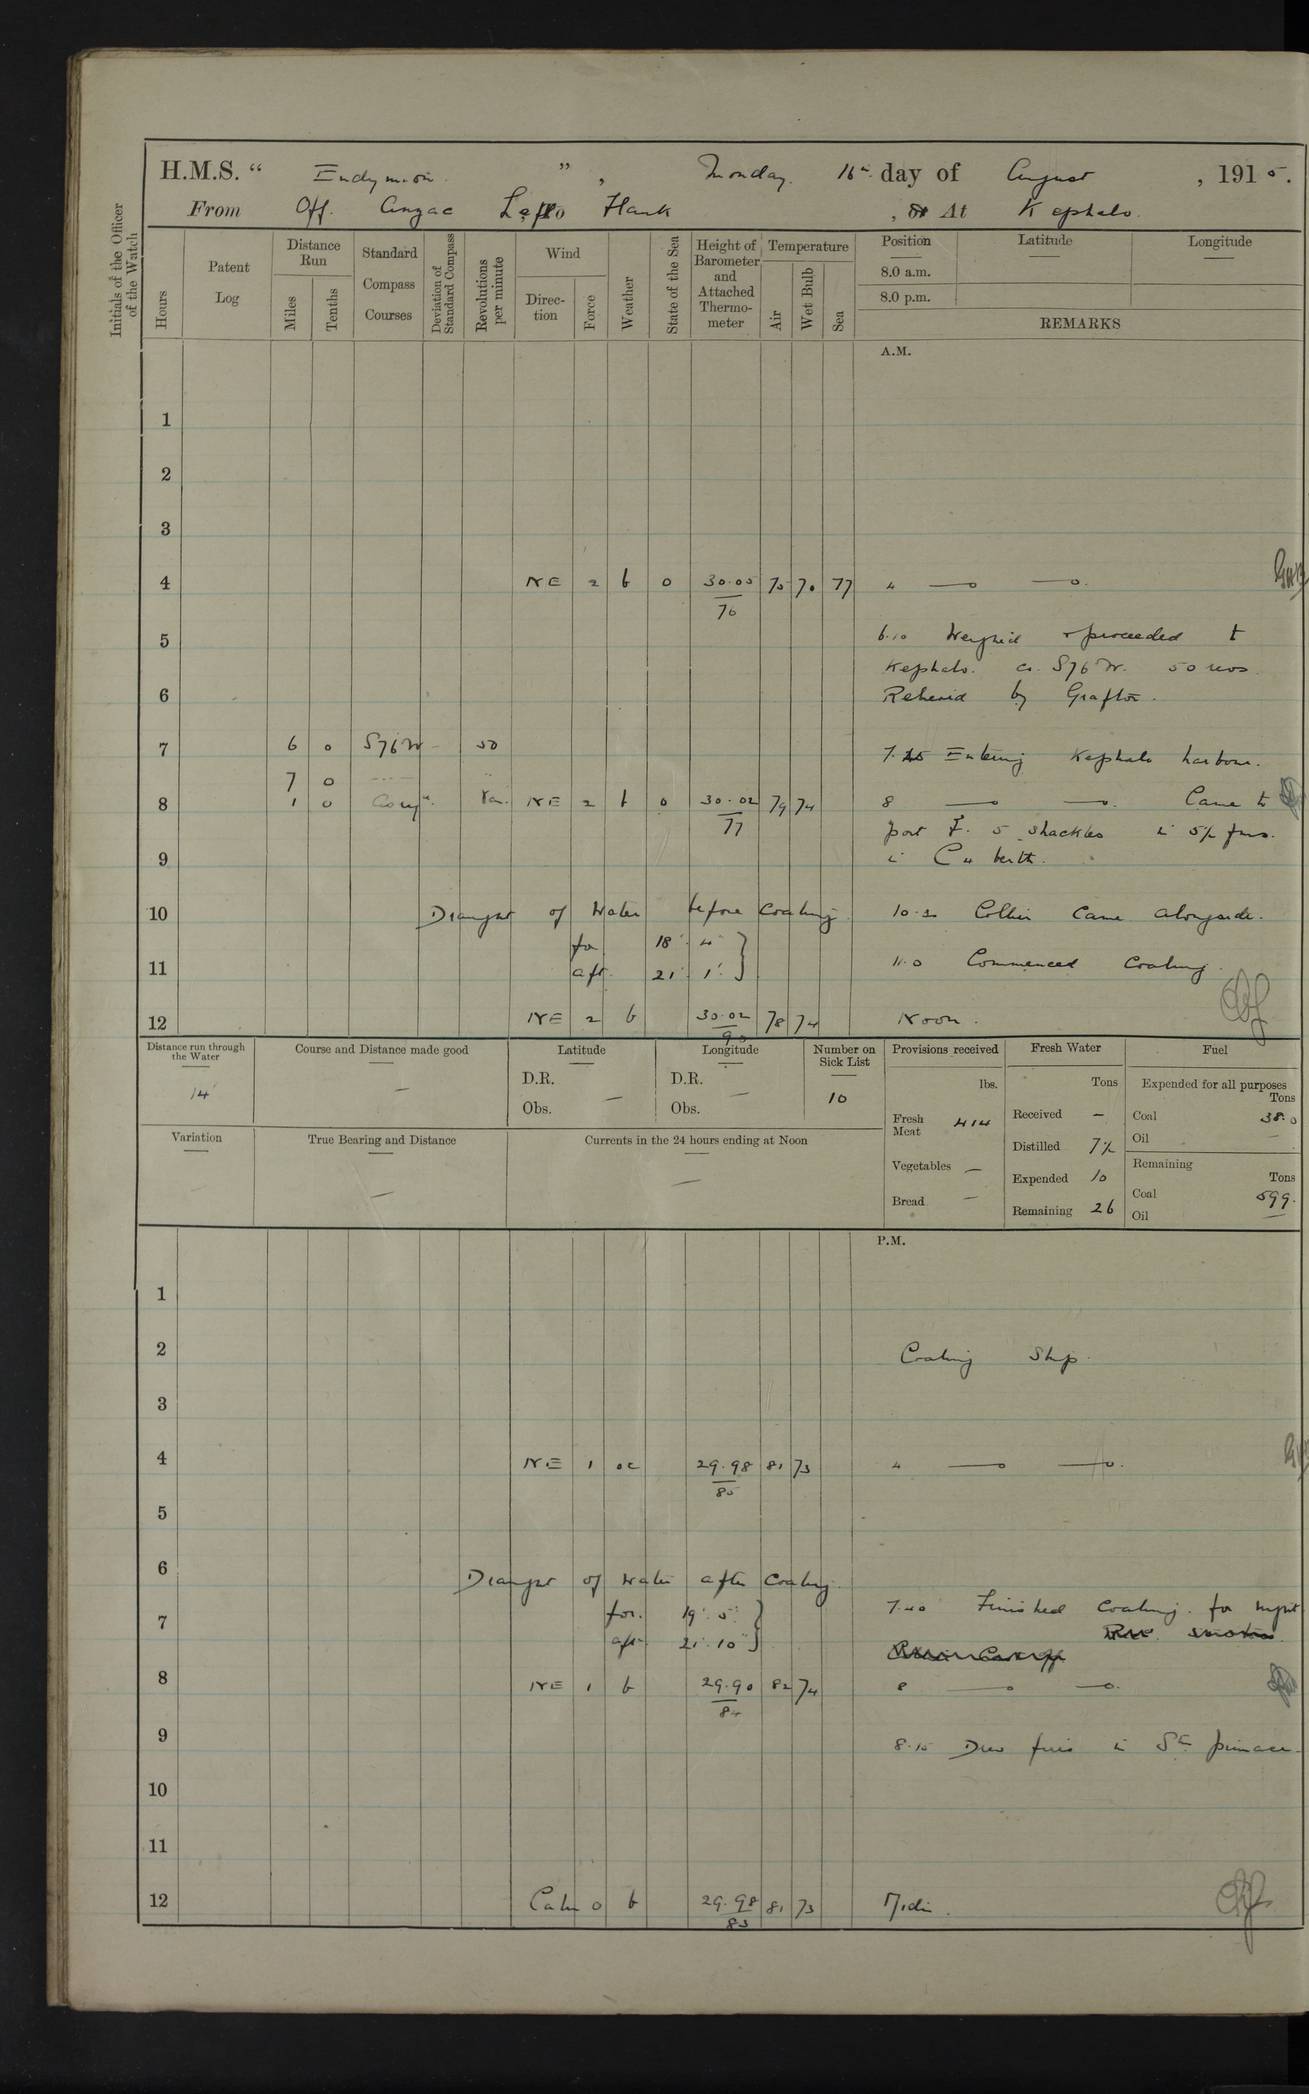 H.M.S. “ Endymion ”, Monday 16th day of August, 1915.
From Off. Anzac Left Flank, At Kephalo.
Initials of the Officer of the Watch
Hours
Patent Log
Distance Run
Miles
Tenths
Standard Compass Courses
Deviation of Standard Compass
Revolutions per minute
Wind
Direction
Force
Weather
State of the Sea
Height of Barometer and Attached Thermometer
Temperature
Air
Wet Bulb
Sea
Position
8.0 a.m.
8.0 p.m.
Latitude
Longitude
REMARKS
A.M.
1
2
3
4 NE 2 b 0 30.05 76 75 70 77 4
5 6.10 Weighed & proceeded t
Kephalo. co. S76W. 50 revs
6 Relieved by Grafton.
7 6 0 S76W 50 7.25 Entering Kephalo harbour.
7 0
8 1 0 NE 2 b 0 30.02 77 79 74 8 Came to
port 5 shackles in 5½ fms.
9 in C4 berth.
10 Draught of Water before Coaling 10.30 Collier came alongside.
for 18' 4"
11 aft. 21' 1" 11.0 Commenced Coaling.
12 NE 2 b 30.02 90 78 74 Noon.
Distance run through the Water
14
Course and Distance made good
—
Latitude
D.R.
Obs. —
Longitude
D.R. —
Obs.
Number on Sick List
10
Variation
True Bearing and Distance
—
Currents in the 24 hours ending at Noon
—
Provisions received
lbs.
Fresh Meat 414
Vegetables —
Bread —
Fresh Water
Tons
Received —
Distilled 7½
Expended 10
Remaining 26
Fuel
Expended for all purposes
Tons
Coal 38.0
Oil —
Remaining
Tons
Coal 599.
Oil —
P.M.
1
2 Coaling Ship.
3
4 NE 1 oc 29.98 85 81 73 4
5
6 Draught of Water after Coaling.
7 for. 19' 5" 7.40 Finished Coaling for night
aft 21' 10"
8 NE 1 b 29.90 84 82 74 8
9 8.15 Drew fires in St. pinnace.
10
11
12 Calm 0 b 29.98 83 81 73 Midn.